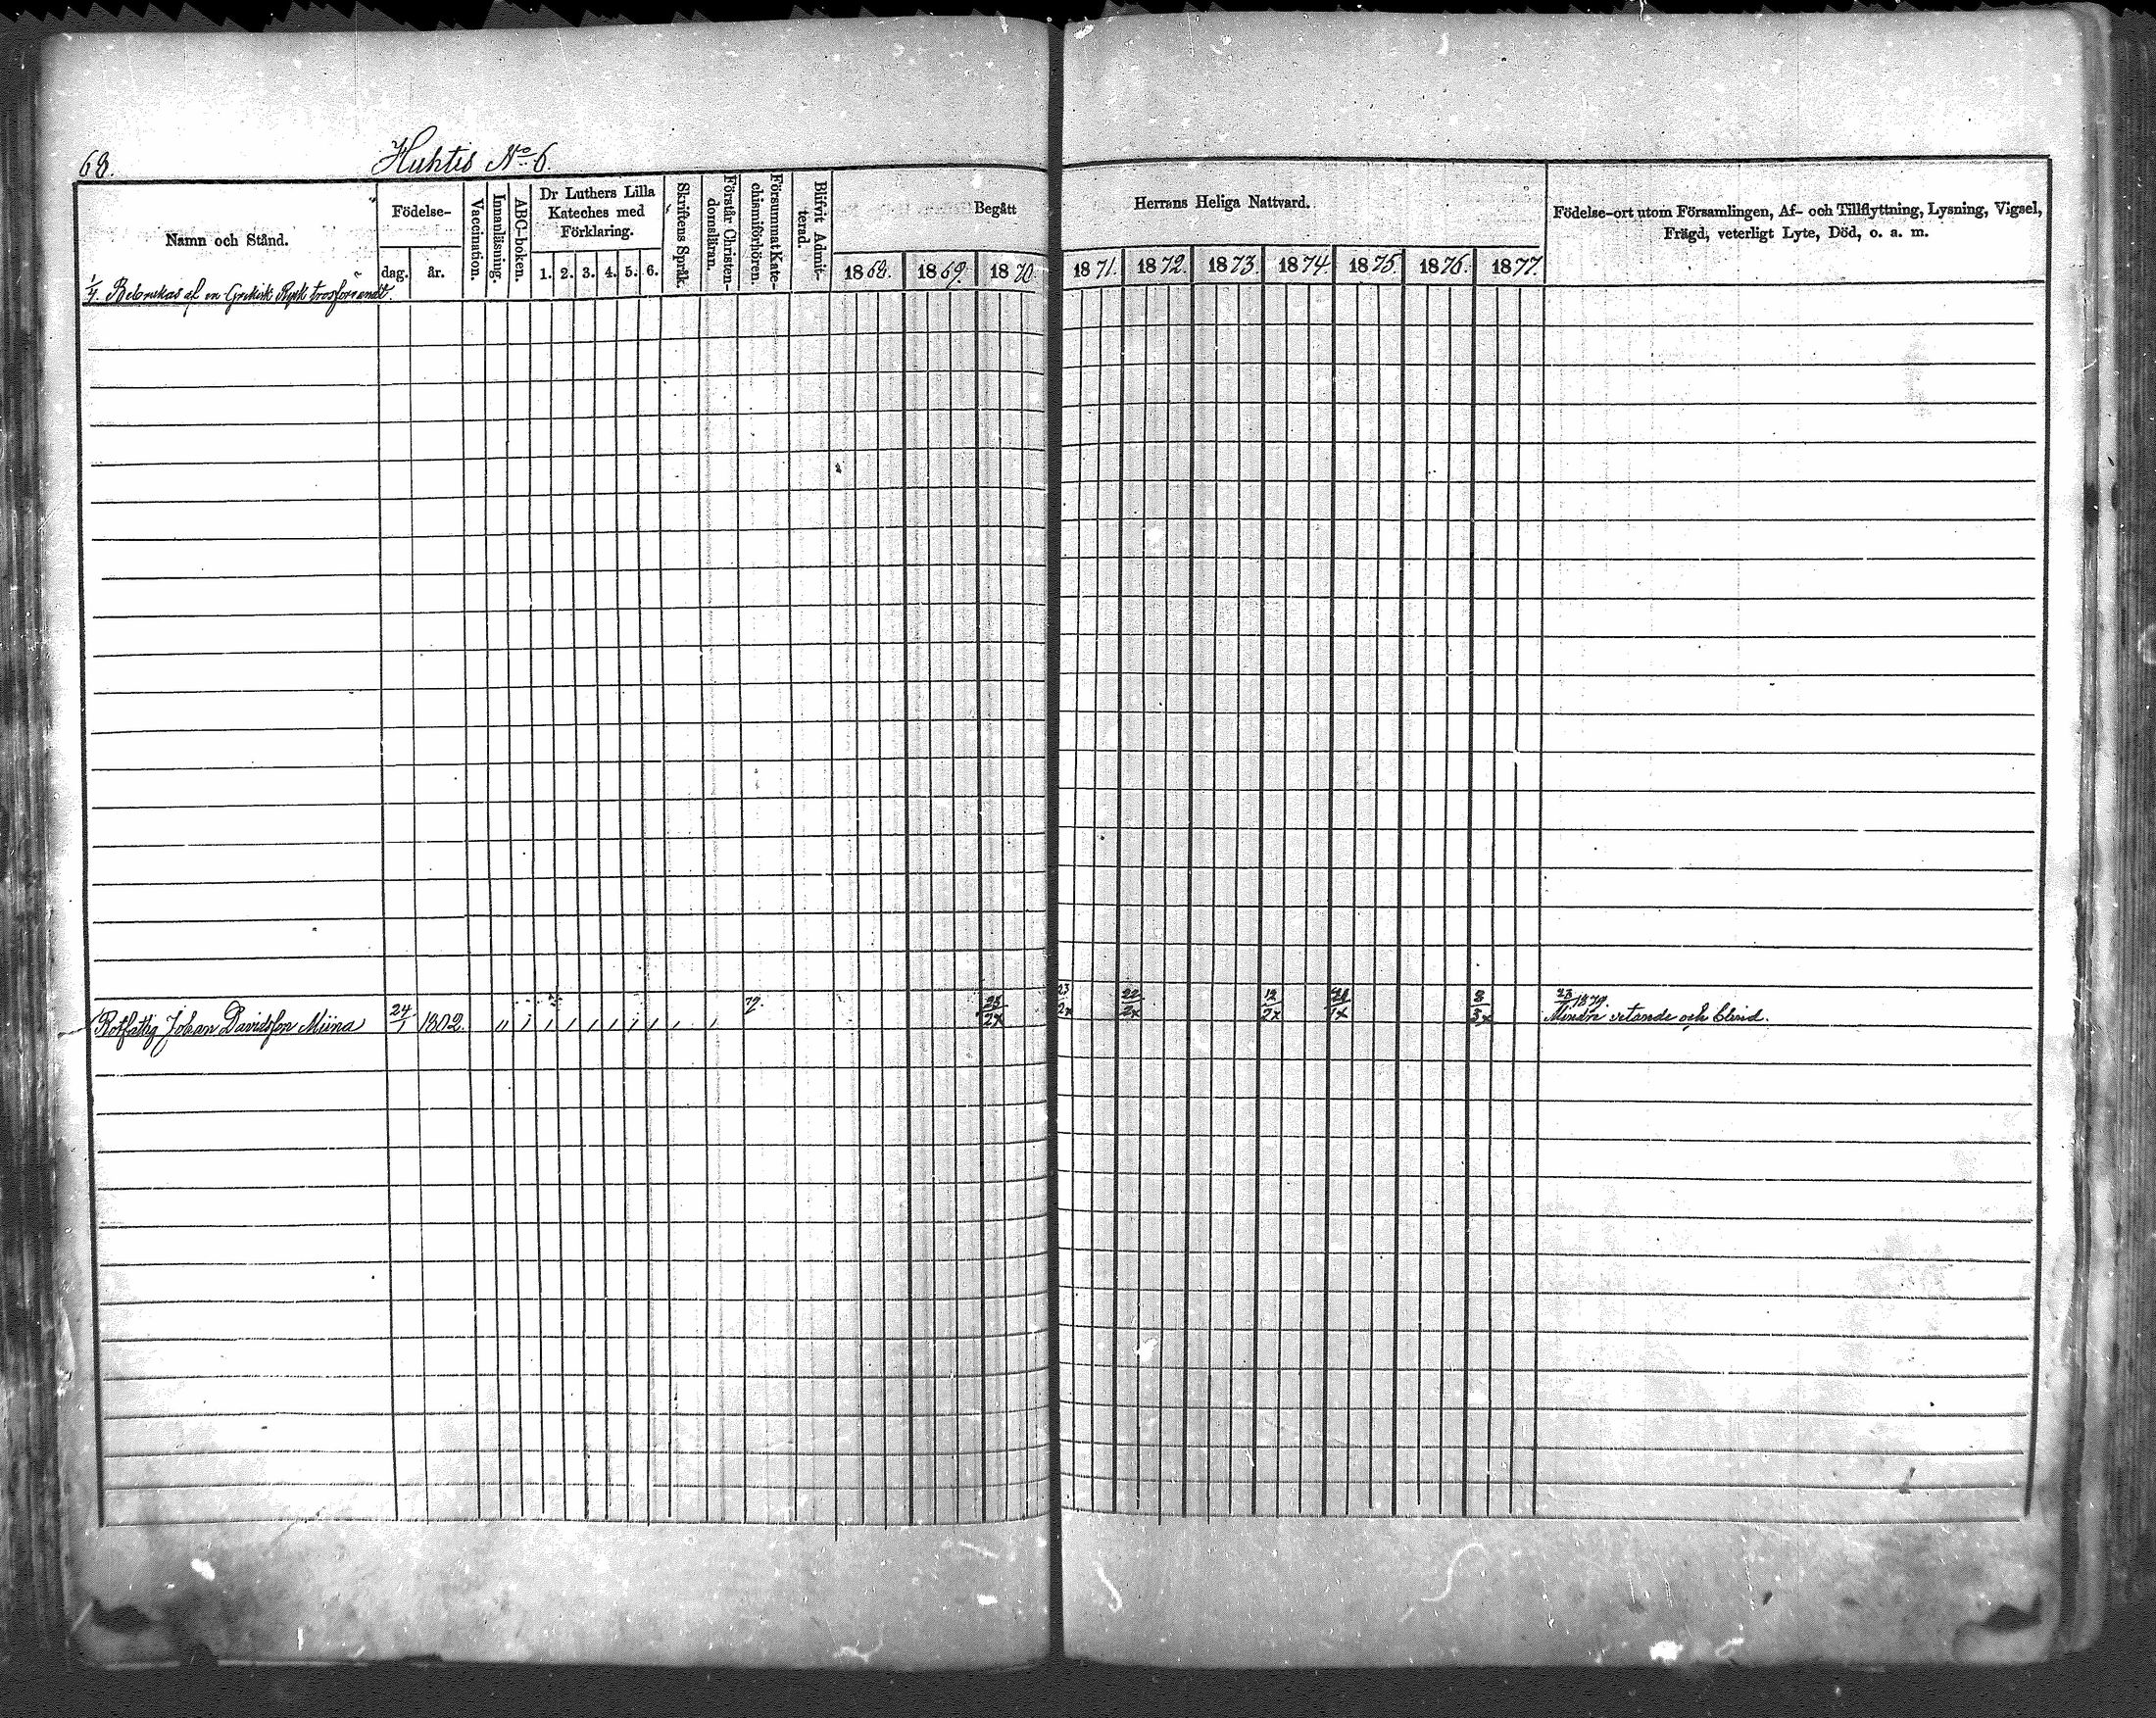 68.
Huhtis No 6.
Namn och Stånd.
Födelse-
dag.
år.
Vaccination.
Innanläsning.
ABC-boken.
Dr Luthers Lilla
Kateches med
Förklaring.
1. 2. 3. 4. 5. 6.
Skriftens Språk.
Förstår Christen-
domsläran.
Försummat Kate-
chismiförhören.
Blifvit Admit-
terad.
Begått
Herrans Heliga Nattvard.
1868. 1869. 1870 1871. 1872. 1873. 1874. 1875. 1876. 1877.
Födelse-ort utom Församlingen, Af- och Tillflyttning, Lysning, Vigsel,
Frägd, veterligt Lyte, Död, o. a. m.
1/4. Bebrukas af en Grekisk Rysk trosförvandt.
Rotfattig Johan Davidsson Miina 24/1 1802. 23/2x 22/2x 12/2x 8/3x
Mindre vetande och blind.